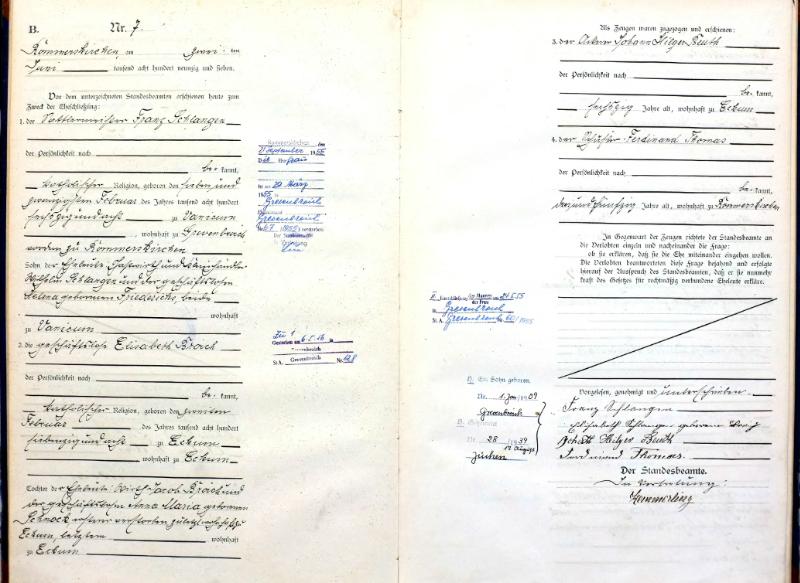 B. Nr. 7.
Rommerskirchen, am
Juni tausend acht hundert neunzig und sieben.
Vor dem unterzeichneten Standesbeamten erschienen heute zum
Zweck der Eheschließung:
1. der Sattlermeister Franz Schlangen
der Persönlichkeit nach
be kannt,
katholischer Religion, geboren den sieben und
zwanzigsten Februar des Jahres tausend acht hundert
sechszig und acht zu Vanicum
, wohnhaft zu Grevenbroich
zu Rommerskirchen
Sohn der Eheleute Gastwirth und
Wilhelm Schlangen und der geschäftslosen
Helena geborenen Friederichs, beide
wohnhaft
zu Vanicum
2. die geschäftslose Elisabeth Broich
der Persönlichkeit nach
be kannt,
katholischer Religion, geboren den zweiten
Februar des Jahres tausend acht hundert
siebenzig und acht zu Eckum
, wohnhaft zu Eckum
Tochter der Eheleute Wirth Jacob Broich und
der geschäftslosen Anna Maria geborenen
erstere verstorben zuletzt wohnhaft zu
Eckum, letztere wohnhaft
zu Eckum
Rommerskirchen, den
September 1955
in am 29 März
1955 in
Grevenbroich
Standesamt
Grevenbroich
Nr. 67 /1955 verstorben
Der Standesbeamte
Zu 1
Gestorben am
Grevenbroich
St.A. Grevenbroich Nr. 128
Als Zeugen waren zugezogen und erschienen:
3. der Ackerer Johann Hilger Beuth
der Persönlichkeit nach
be kannt,
sechszig Jahre alt, wohnhaft zu Eckum
4. der Schuster Ferdinand Thomas
der Persönlichkeit nach
be kannt,
drei und fünfzig Jahre alt, wohnhaft zu Rommerskirchen
In Gegenwart der Zeugen richtete der Standesbeamte an
die Verlobten einzeln und nacheinander die Frage:
ob sie erklären, daß sie die Ehe miteinander eingehen wollen.
Die Verlobten beantworteten diese Frage bejahend und erfolgte
hierauf der Ausspruch des Standesbeamten, daß er sie nunmehr
kraft des Gesetzes für rechtmäßig verbundene Eheleute erkläre.
der Frau
in Grevenbroich
St.A. Grevenbroich
Ein Sohn geboren
Nr. 1 1909
Grevenbroich
Nr. 28 /1939
Jüchen
Vorgelesen, genehmigt und unterschrieben
Franz Schlangen
Elisabeth Schlangen geborene Broich
Joh. Hilger Beuth
Ferdinand Thomas.
Der Standesbeamte.
In Vertretung: